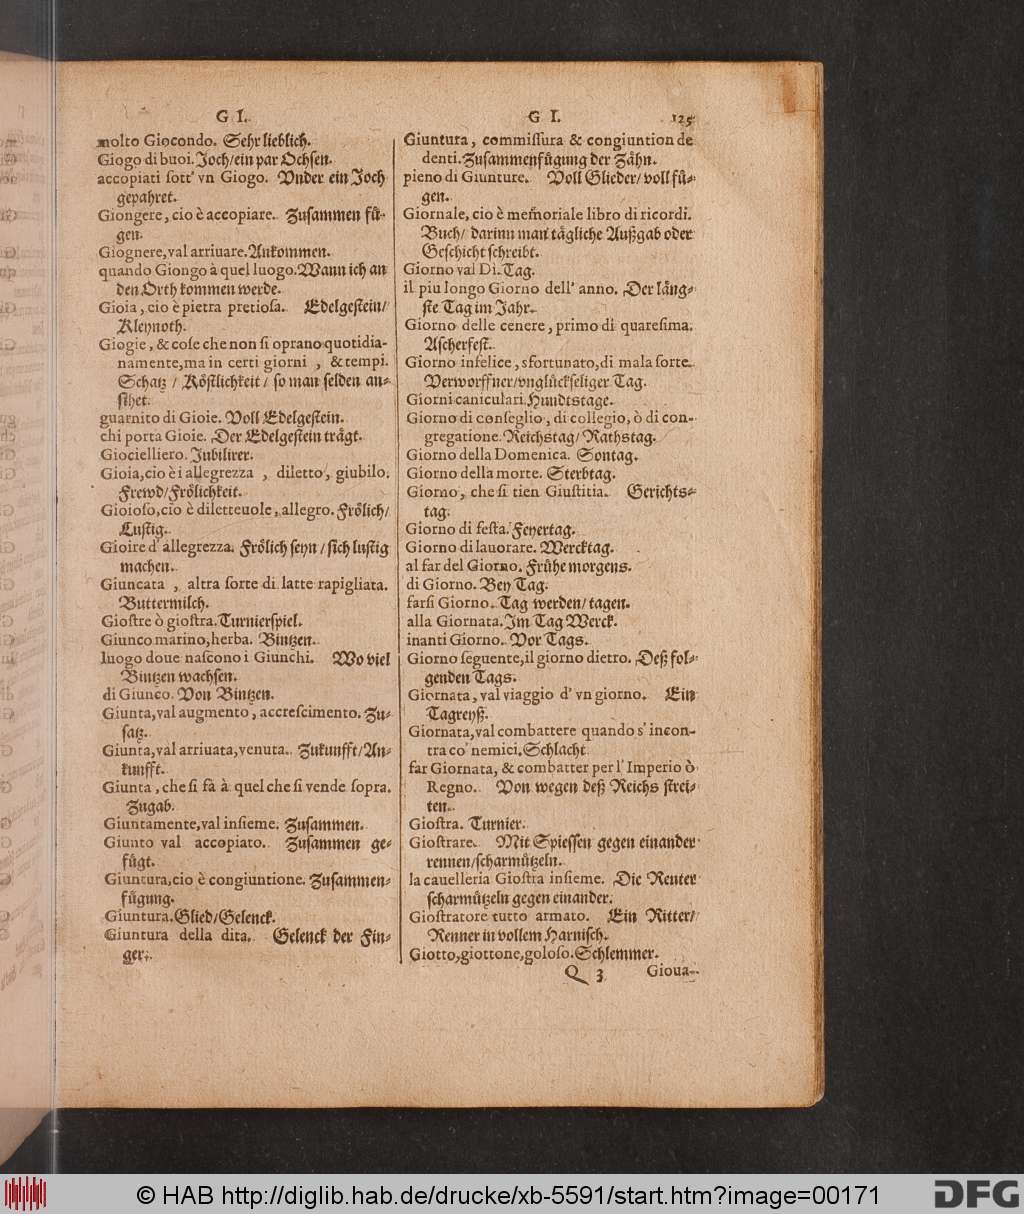 G I.
molto Giocondo. Sehr lieblich.
Giogo di buoi. Joch/ein par Ochsen.
accopiati sott' vn Giogo. Vnder ein Joch
gepahret.
Giongere, cio è accopiare. Zusammen fü-
gen.
Giognere, val arriuare. Ankommen.
quando Giongo à quel luogo. Wann ich an
den Orth kommen werde.
Gioia, cio è pietra pretiosa. Edelgestein/
Kleynoth.
Giogie, & cose che non si oprano quotidia-
namente, ma in certi giorni, & tempi.
Schatz / Köstlichkeit / so man selden an-
sihet.
guarnito di Gioie. Voll Edelgestein.
chi porta Gioie. Der Edelgestein trägt.
Giocielliero. Jubilirer.
Gioia, cio è i allegrezza, diletto, giubilo.
Frewd/Frölichkeit.
Gioioso, cio è diletteuole, allegro. Frölich/
Lustig.
Gioire d' allegrezza. Frölich seyn / sich lustig
machen.
Giuncata, altra sorte di latte rapigliata.
Buttermilch.
Giostre ò giostra. Turnierspiel.
Giunco marino, herba. Bintzen.
luogo doue nascono i Giunchi. Wo viel
Bintzen wachsen.
di Giunco. Von Bintzen.
Giunta, val augmento, accrescimento. Zu-
satz.
Giunta, val arriuata, venuta. Zukunfft/An-
kunfft.
Giunta, che si fà à quel che si vende sopra.
Zugab.
Giuntamente, val insieme. Zusammen.
Giunto val accopiato. Zusammen ge-
fügt.
Giuntura, cio è congiuntione. Zusammen-
fügung.
Giuntura. Glied/Gelenck.
Giuntura della dita. Gelenck der Fin-
ger.
G I. 125
Giuntura, commissura & congiuntion de
denti. Zusammenfügung der Zähn.
pieno di Giunture. Voll Glieder/ voll fü-
gen.
Giornale, cio è mem̃oriale libro di ricordi.
Buch/ darinn man tägliche Außgab oder
Geschicht schreibt.
Giorno val Dì. Tag.
il piu longo Giorno dell' anno. Der läng-
ste Tag im Jahr.
Giorno delle cenere, primo di quaresima.
Ascherfest.
Giorno infelice, sfortunato, di mala sorte.
Verworffner/vnglückseliger Tag.
Giorni caniculari. Hundtstage.
Giorno di conseglio, di collegio, ò di con-
gregatione. Reichstag/ Rathstag.
Giorno della Domenica. Sontag.
Giorno della morte. Sterbtag.
Giorno, che si tien Giustitia. Gerichts-
tag.
Giorno di festa. Feyertag.
Giorno di lauorare. Wercktag.
al far del Giorno. Frühe morgens.
di Giorno. Bey Tag.
farsi Giorno. Tag werden/ tagen.
alla Giornata. Im Tag Werck.
inanti Giorno. Vor Tags.
Giorno seguente, il giorno dietro. Deß fol-
genden Tags.
Giornata, val viaggio d' vn giorno. Ein
Tagreyß.
Giornata, val combattere quando s' incon-
tra co' nemici. Schlacht
far Giornata, & combatter per l' Imperio ò
Regno. Von wegen deß Reichs strei-
ten.
Giostra. Turnier.
Giostrare. Mit Spiessen gegen einander
rennen/scharmützeln.
la cauelleria Giostra insieme. Die Reuter
scharmützeln gegen einander.
Giostratore tutto armato. Ein Ritter/
Renner in vollem Harnisch.
Giotto, giottone, goloso. Schlemmer.
Q 3 Gioua-
© HAB http://diglib.hab.de/drucke/xb-5591/start.htm?image=00171
DFG